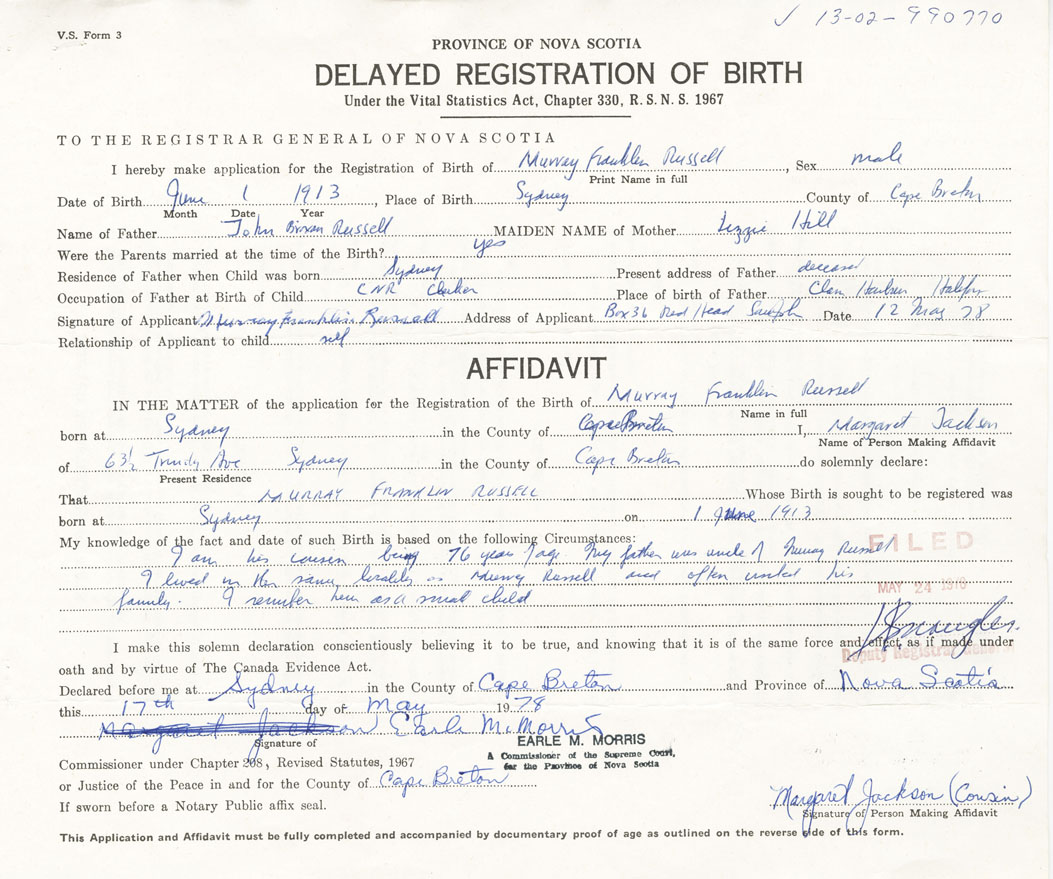 ✓ 13-02-990770
V.S. Form 3
PROVINCE OF NOVA SCOTIA
DELAYED REGISTRATION OF BIRTH
Under the Vital Statistics Act, Chapter 330, R.S.N.S. 1967
TO THE REGISTRAR GENERAL OF NOVA SCOTIA
I hereby make application for the Registration of Birth of Murray Franklin Russell, Sex male
Print Name in full
Date of Birth June 1 1913, Place of Birth Sydney County of Cape Breton
Month Date Year
Name of Father John Russell MAIDEN NAME of Mother Lizzie Hill
Were the Parents married at the time of the Birth? yes
Residence of Father when Child was born Sydney Present address of Father deceased
Occupation of Father at Birth of Child CNR Place of birth of Father Halifax
Signature of Applicant Murray Franklin Russell Address of Applicant Box 36 Red Head Date 12 May 78
Relationship of Applicant to child self
AFFIDAVIT
IN THE MATTER of the application for the Registration of the Birth of Murray Franklin Russell
Name in full
born at Sydney in the County of Cape Breton I, Margaret Jackson
Name of Person Making Affidavit
of 63½ Ave Sydney in the County of Cape Breton do solemnly declare:
Present Residence
That MURRAY FRANKLIN RUSSELL Whose Birth is sought to be registered was
born at Sydney on 1 June 1913
My knowledge of the fact and date of such Birth is based on the following Circumstances:
I am his cousin being 76 years of age. My father was uncle of Murray Russell
FILED
I lived in the same locality as Murray Russell and often visited his
MAY 24 1978
family. I remember him as a small child
I make this solemn declaration conscientiously believing it to be true, and knowing that it is of the same force and effect, as if made under
oath and by virtue of The Canada Evidence Act.
Deputy Registrar General
Declared before me at Sydney in the County of Cape Breton and Province of Nova Scotia
this 17th day of May 1978
Margaret Jackson Earle M Morris
Signature of
EARLE M. MORRIS
A Commissioner of the Supreme Court,
for the Province of Nova Scotia
Commissioner under Chapter 208, Revised Statutes, 1967
or Justice of the Peace in and for the County of Cape Breton
If sworn before a Notary Public affix seal.
Margaret Jackson (Cousin)
Signature of Person Making Affidavit
This Application and Affidavit must be fully completed and accompanied by documentary proof of age as outlined on the reverse side of this form.